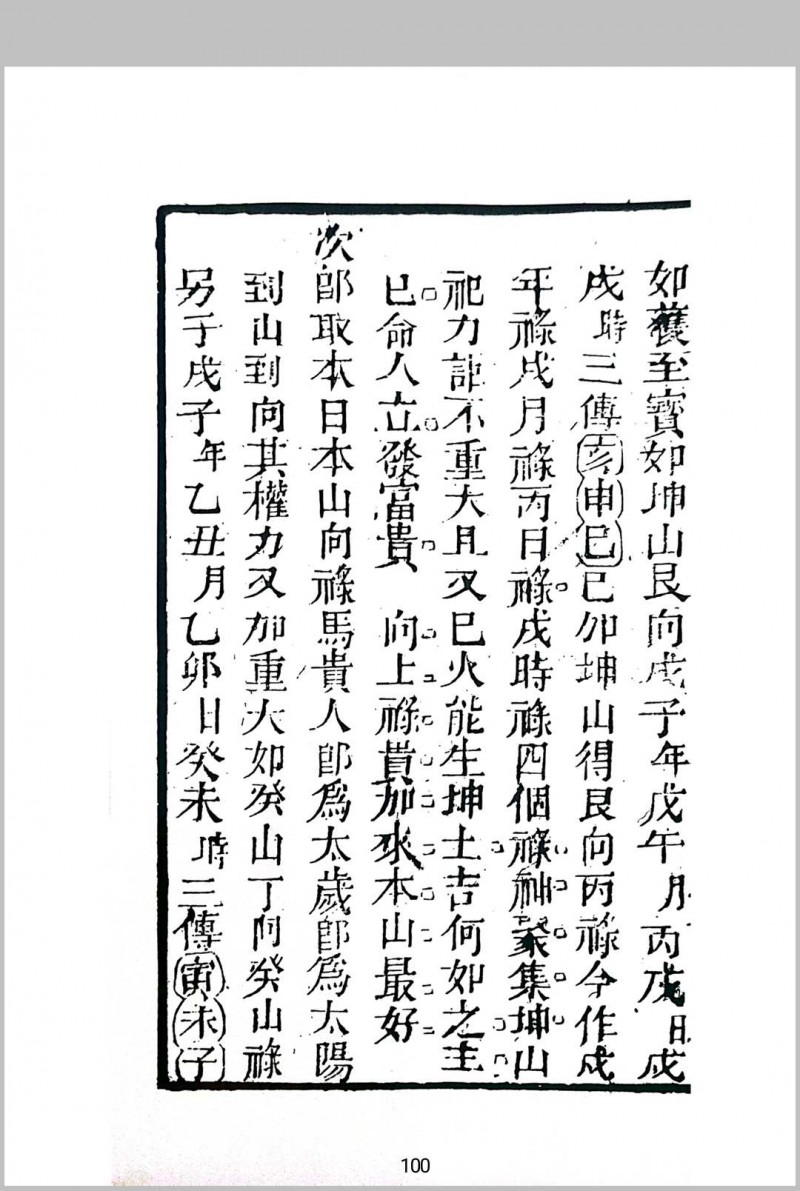 如獲至寶如坤山艮向戊子年戊午月丙戌日戊
戌時三傳亥申巳巳卯坤山得艮向丙祿今作戊
年祿戊月祿丙日祿戊時祿四個祿神聚集坤山
祀力詎不重大且又巳火能生坤土吉何如之主
巳命人立發富貴 向上祿貴加來本山最好
次郎取本日本山向祿馬貴人即為太歲即為太陽
到山到向其權力又加重大如癸山丁向癸山祿
另子戊子年乙丑月乙卯日癸未時三傳寅未子
100